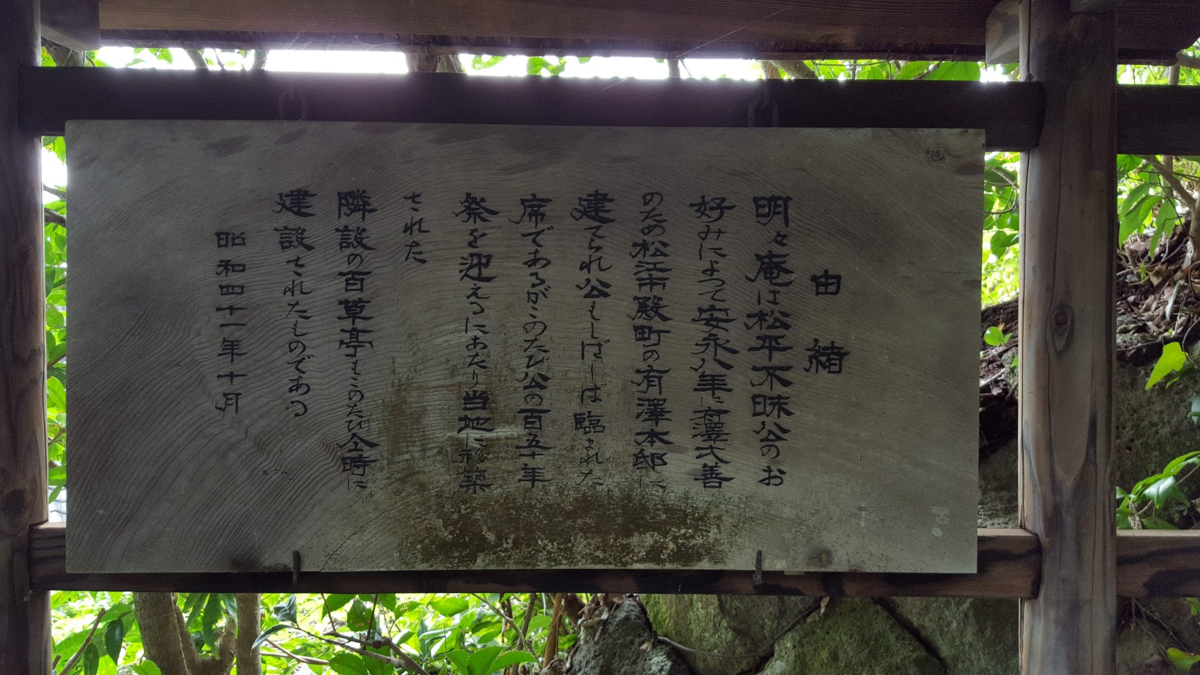 由緒
明々庵は松平不昧公のお
好みによって安永八年に有澤弌善
のため松江市殿町の有澤本邸に
建てられ公もしばしば臨まれた
席であるがこのたび公の百五十年
祭を迎えるにあたり当地に移築
された
隣設の百草亭もこのたび仝時に
建設されたものである
昭和四十一年十月